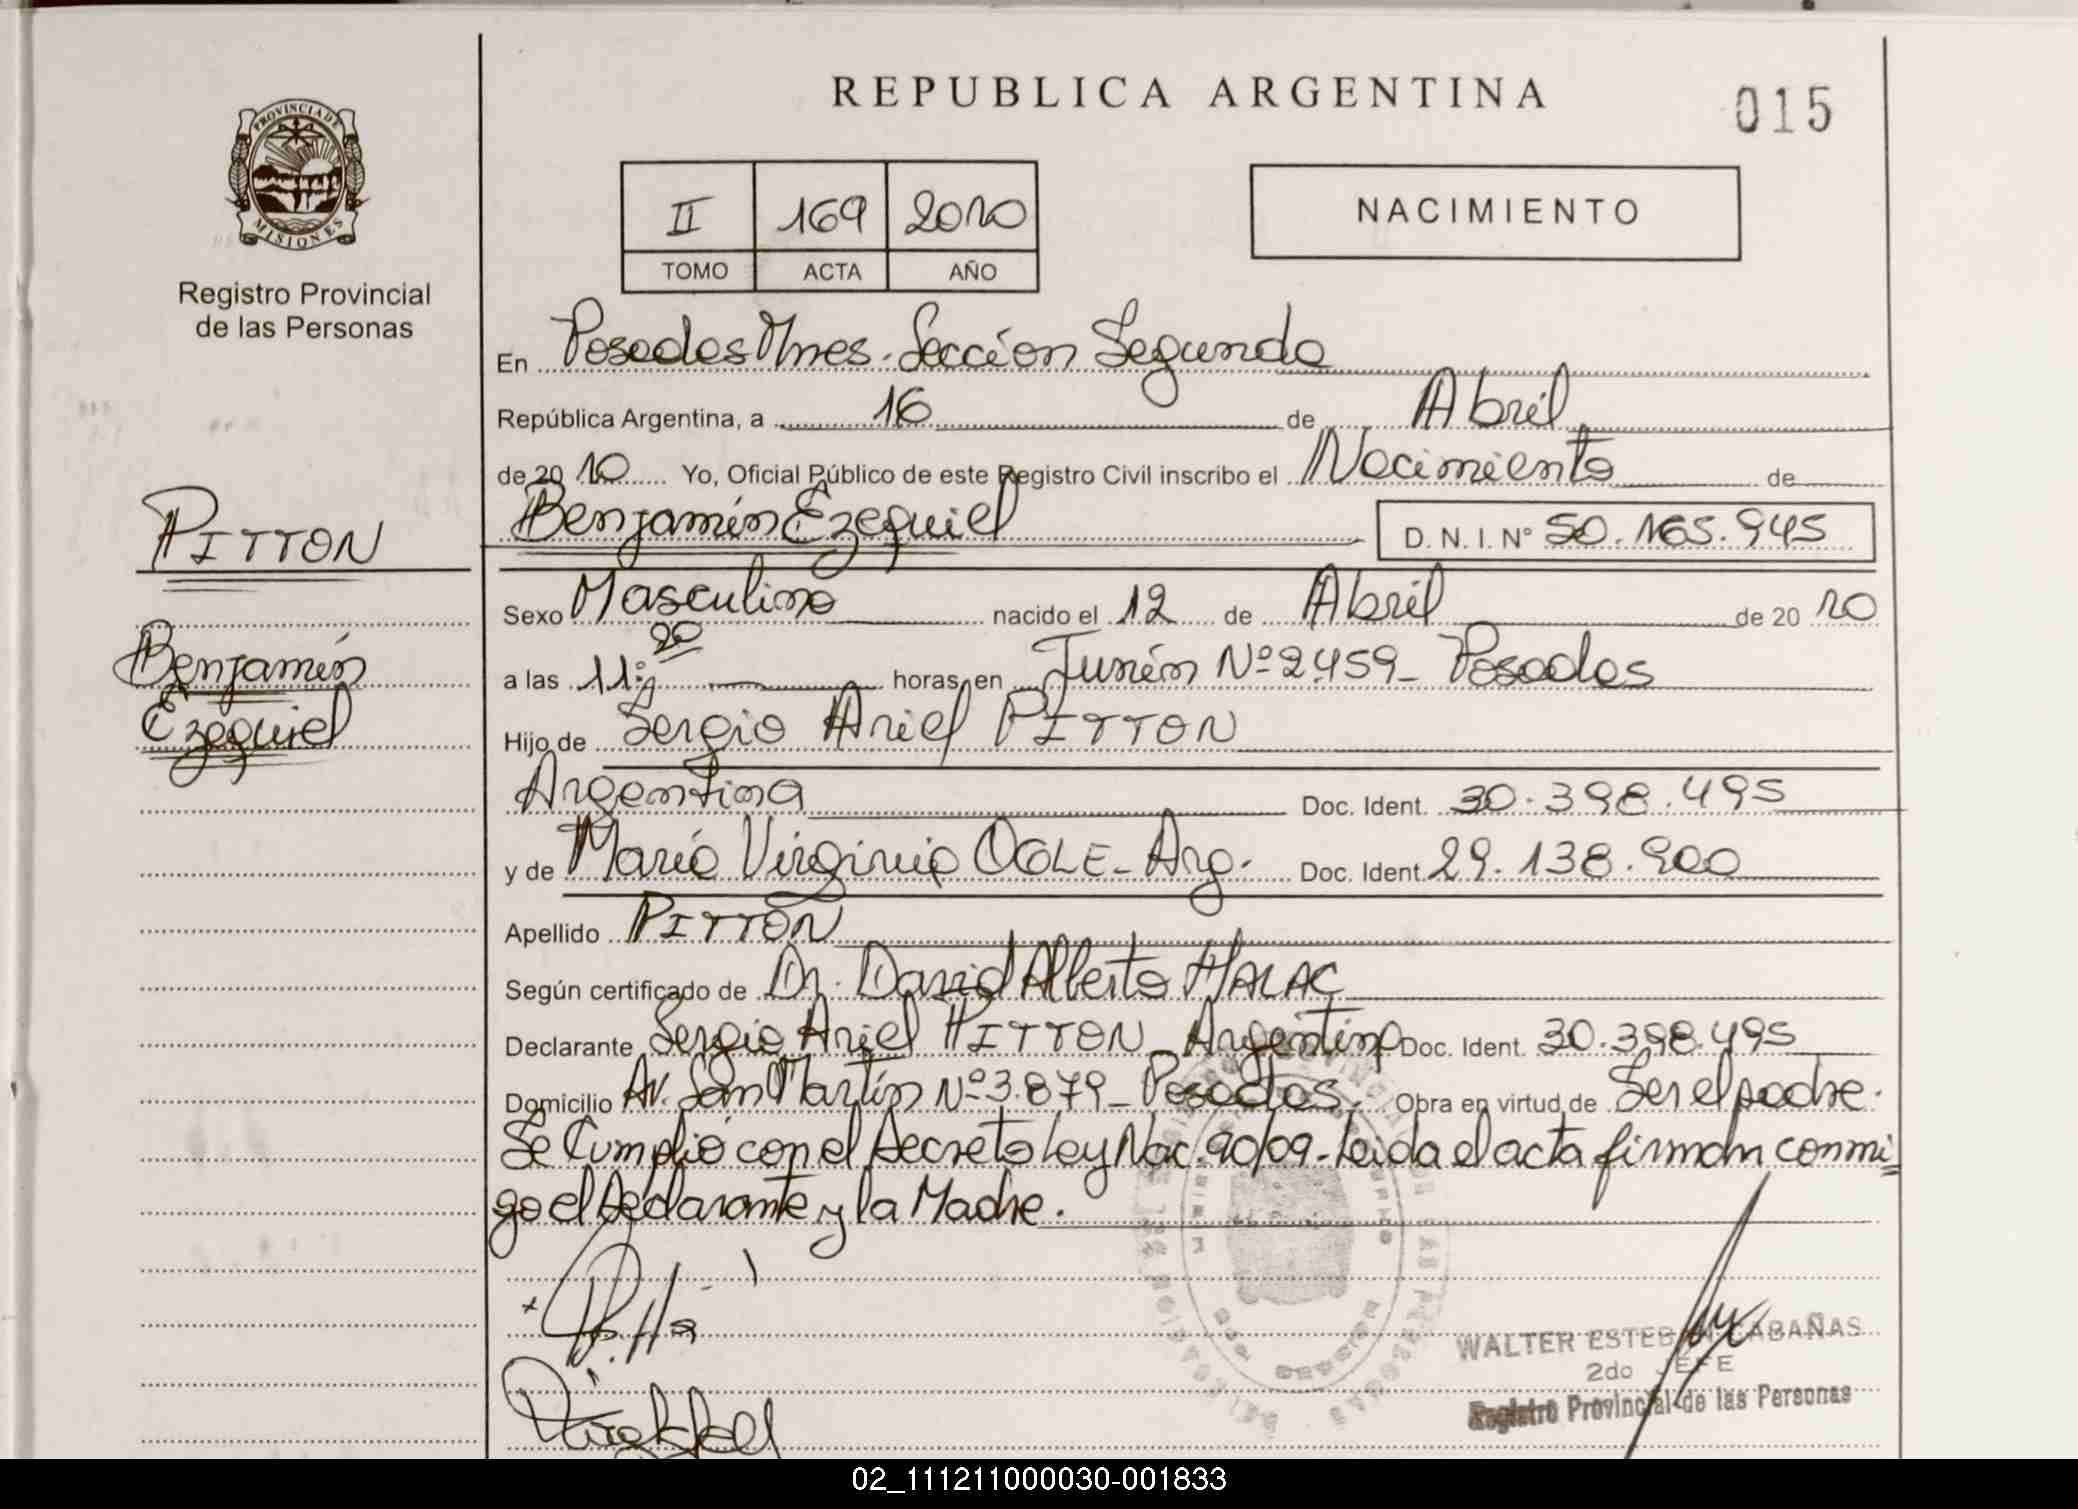 REPUBLICA ARGENTINA
015
PROVINCIA DE
MISIONES
Registro Provincial
de las Personas
II 169 2010
TOMO ACTA AÑO
NACIMIENTO
En Posadas Mnes. Sección Segunda
República Argentina, a 16 de Abril
de 20 10 Yo, Oficial Público de este Registro Civil inscribo el Nacimiento de
Benjamín Ezequiel D. N. I. Nº 50.165.945
PITTON
Benjamín
Ezequiel
Sexo Masculino nacido el 12 de Abril de 20 10
a las 11:20 horas, en Junín Nº 2459 - Posadas
Hijo de Sergio Ariel PITTON
Argentina Doc. Ident. 30.398.495
y de María Virginia OGLE - Arg. Doc. Ident. 29.138.900
Apellido PITTON
Según certificado de Dr. David Alberto HALAC
Declarante Sergio Ariel PITTON Argentina Doc. Ident. 30.398.495
Domicilio Av. San Martín Nº 3.879 - Posadas. Obra en virtud de Ser el padre.
Se Cumplió con el Decreto Ley Nac. 90/09 - Leida el acta firman conmi=
go el Declarante y la Madre.
WALTER ESTEBAN CABAÑAS
2do JEFE
Registro Provincial de las Personas
02_111211000030-001833